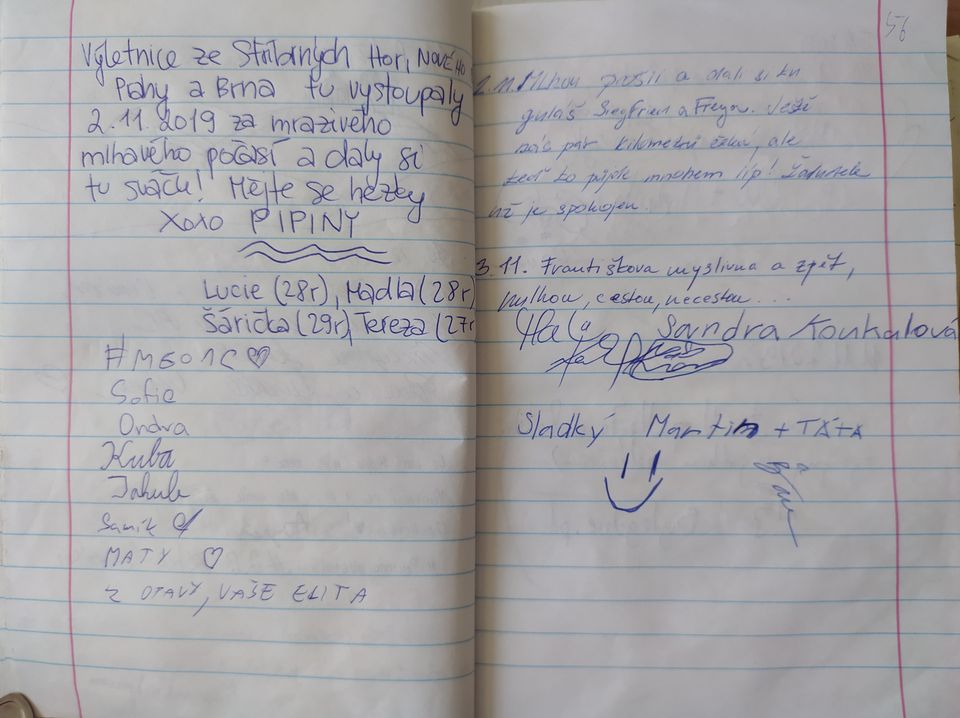 Výletnice ze Stříbrných Hor, NOVÉHO
Pahy a Brna tu vystoupaly
2.11.2019 za mrazivého
mlhavého počasí a daly si
tu sváču! Mějte se hezky
XOXO PIPINY
Lucie (28r), Madla (28r)
Šárička (29r), Tereza (27r
#M601C♡
Sofie
Ondra
Kuba
Jakub
Samík
MATY ♡
Z OTAVY, VAŠE ELITA
56
2.11. Mlhou prošli a dali si
guláš Siegfried a Freya. Ještě
pár kilometrů čeká, ale
teď to půjde mnohem líp! Žaludek
už je spokojen.
3.11. Františkova myslivna a zpět,
mlhou, cestou, necestou...
Sandra Koukalová
Sladký Martin + TÁTA